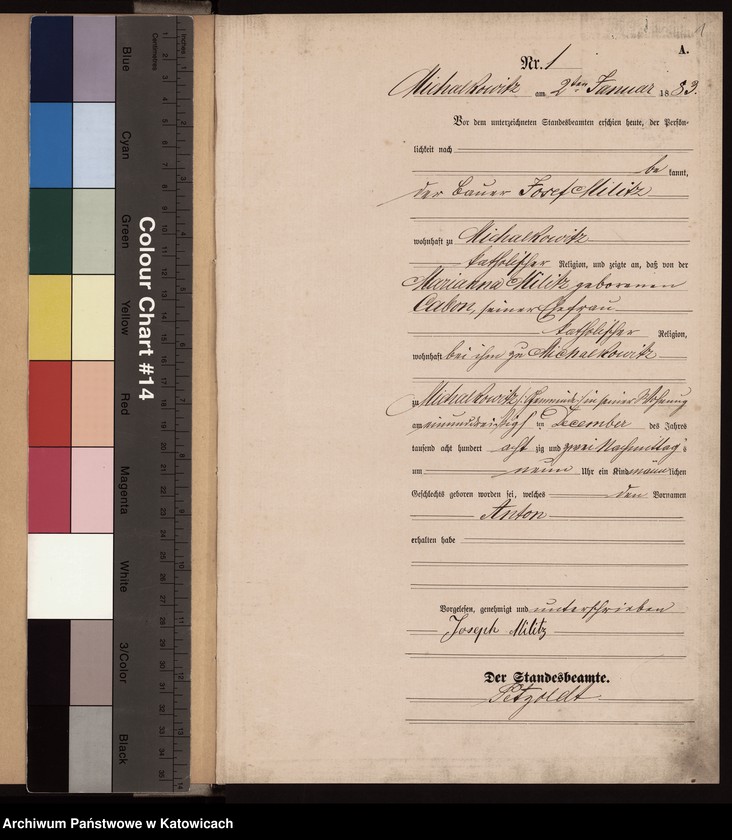 Blue
Cyan
Green
Yellow
Red
Magenta
White
3/Color
Black
Colour Chart #14
Centimetres
Inches
A.
Nr. 1
Michalkowitz am 2ten Januar 1883.
Vor dem unterzeichneten Standesbeamten erschien heute, der Persön-
lichkeit nach
be kannt,
der Bauer Josef Militz
wohnhaft zu Michalkowitz
katholischer Religion, und zeigte an, daß von der
Marianna Militz geborenen
Cabon, seiner Ehefrau
katholischer Religion,
wohnhaft bei ihm zu Michalkowitz
zu Michalkowitz (Gemeinde) in seiner Wohnung
am einunddreißigsten December des Jahres
tausend acht hundert achtzig und zwei Nachmittags
um neun Uhr ein Kind männlichen
Geschlechts geboren worden sei, welches den Vornamen
Anton
erhalten habe
Vorgelesen, genehmigt und unterschrieben
Joseph Militz
Der Standesbeamte.
Petzoldt
Archiwum Państwowe w Katowicach